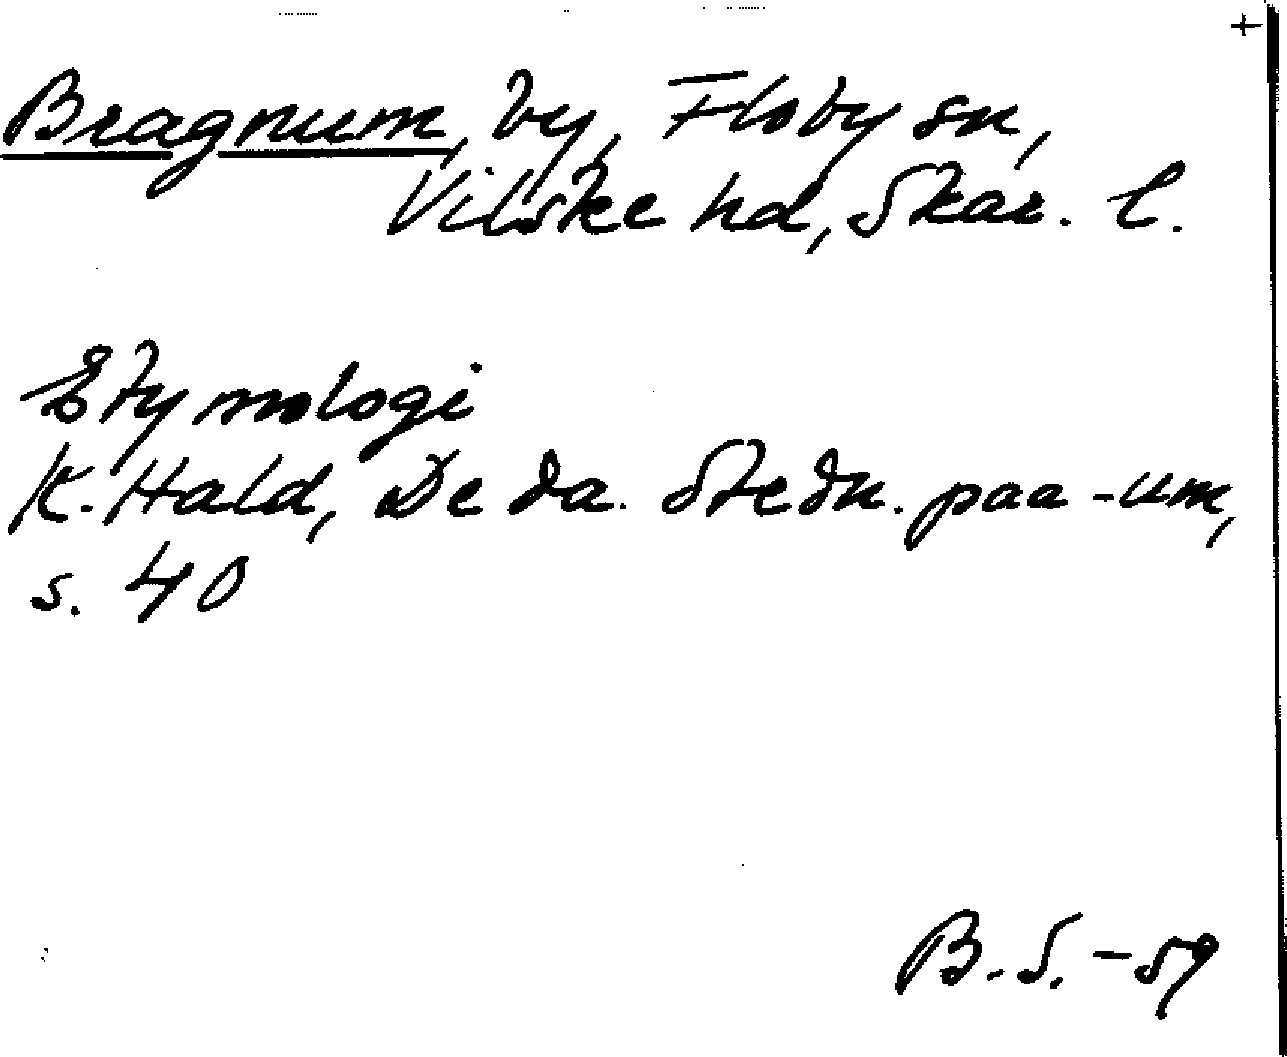 +
Bragnum, by, Floby sn,
Vilske hd, Skar. l.
Etymologi
K. Hald, De da. Stedn. paa -um,
s. 40
B.S. -59